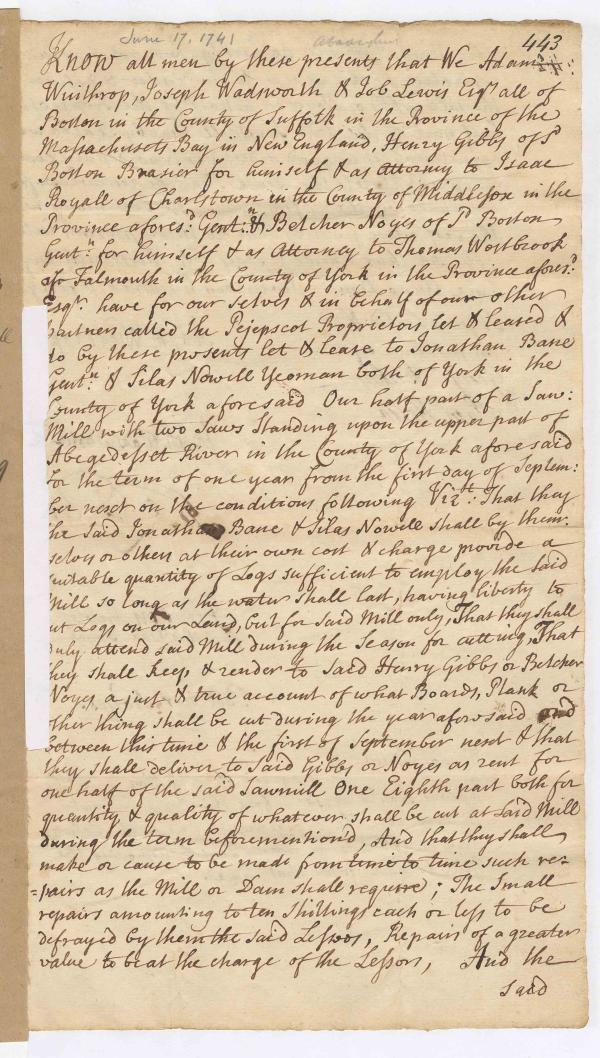 June 17. 1741
443
Know all men by these presents that We Adam
Winthrop, Joseph Wadsworth & Job Lewis Esqrs all of
Boston in the County of Suffolk in the Province of the
Massachusets Bay in New England, Henry Gibbs of sd
Boston Brasier for himself & as Attorney to Isaac
Royall of Charlstown in the County of Middlesex in the
Province aforesd: Gent:n & Belcher Noyes of sd Boston
Gentn for himself & as Attorney to Thomas Westbrook
of Falmouth in the County of York in the Province aforesd:
Esqr. have for our selves & in behalf of our other
partners called the Pejepscot Proprietors let & leased &
do by these presents let & lease to Jonathan Bane
Gent:n & Silas Nowell Yeoman both of York in the
County of York aforesaid Our half part of a Saw:
Mill with two Saws Standing upon the upper part of
Abegedesset River in the County of York aforesaid
for the term of one year from the first day of Septem:
ber next on the conditions following Vizt: That they
the Said Jonathan Bane & Silas Nowell shall by them:
selves or others at their own cost & charge provide a
suitable quantity of Logs sufficient to employ the said
Mill so long as the water shall last, having liberty to
cut Logs on our Land, but for said Mill only, That they shall
duly attend said Mill during the Season for cutting, That
they shall keep & render to said Henry Gibbs or Belcher
Noyes a just & true account of what Boards, Plank or
other thing shall be cut during the year aforesaid and
between this time & the first of September next & that
they shall deliver to said Gibbs or Noyes as rent for
one half of the said Sawmill One Eighth part both for
quantity & quality of whatever shall be cut at said Mill
during the term beforemention'd, And that they shall
make or cause to be made from time to time such re=
=pairs as the Mill or Dam shall require; The Small
repairs amounting to ten shillings each or less to be
defrayed by them the said Lessees, Repairs of a greater
value to be at the charge of the Lessors, And the
said